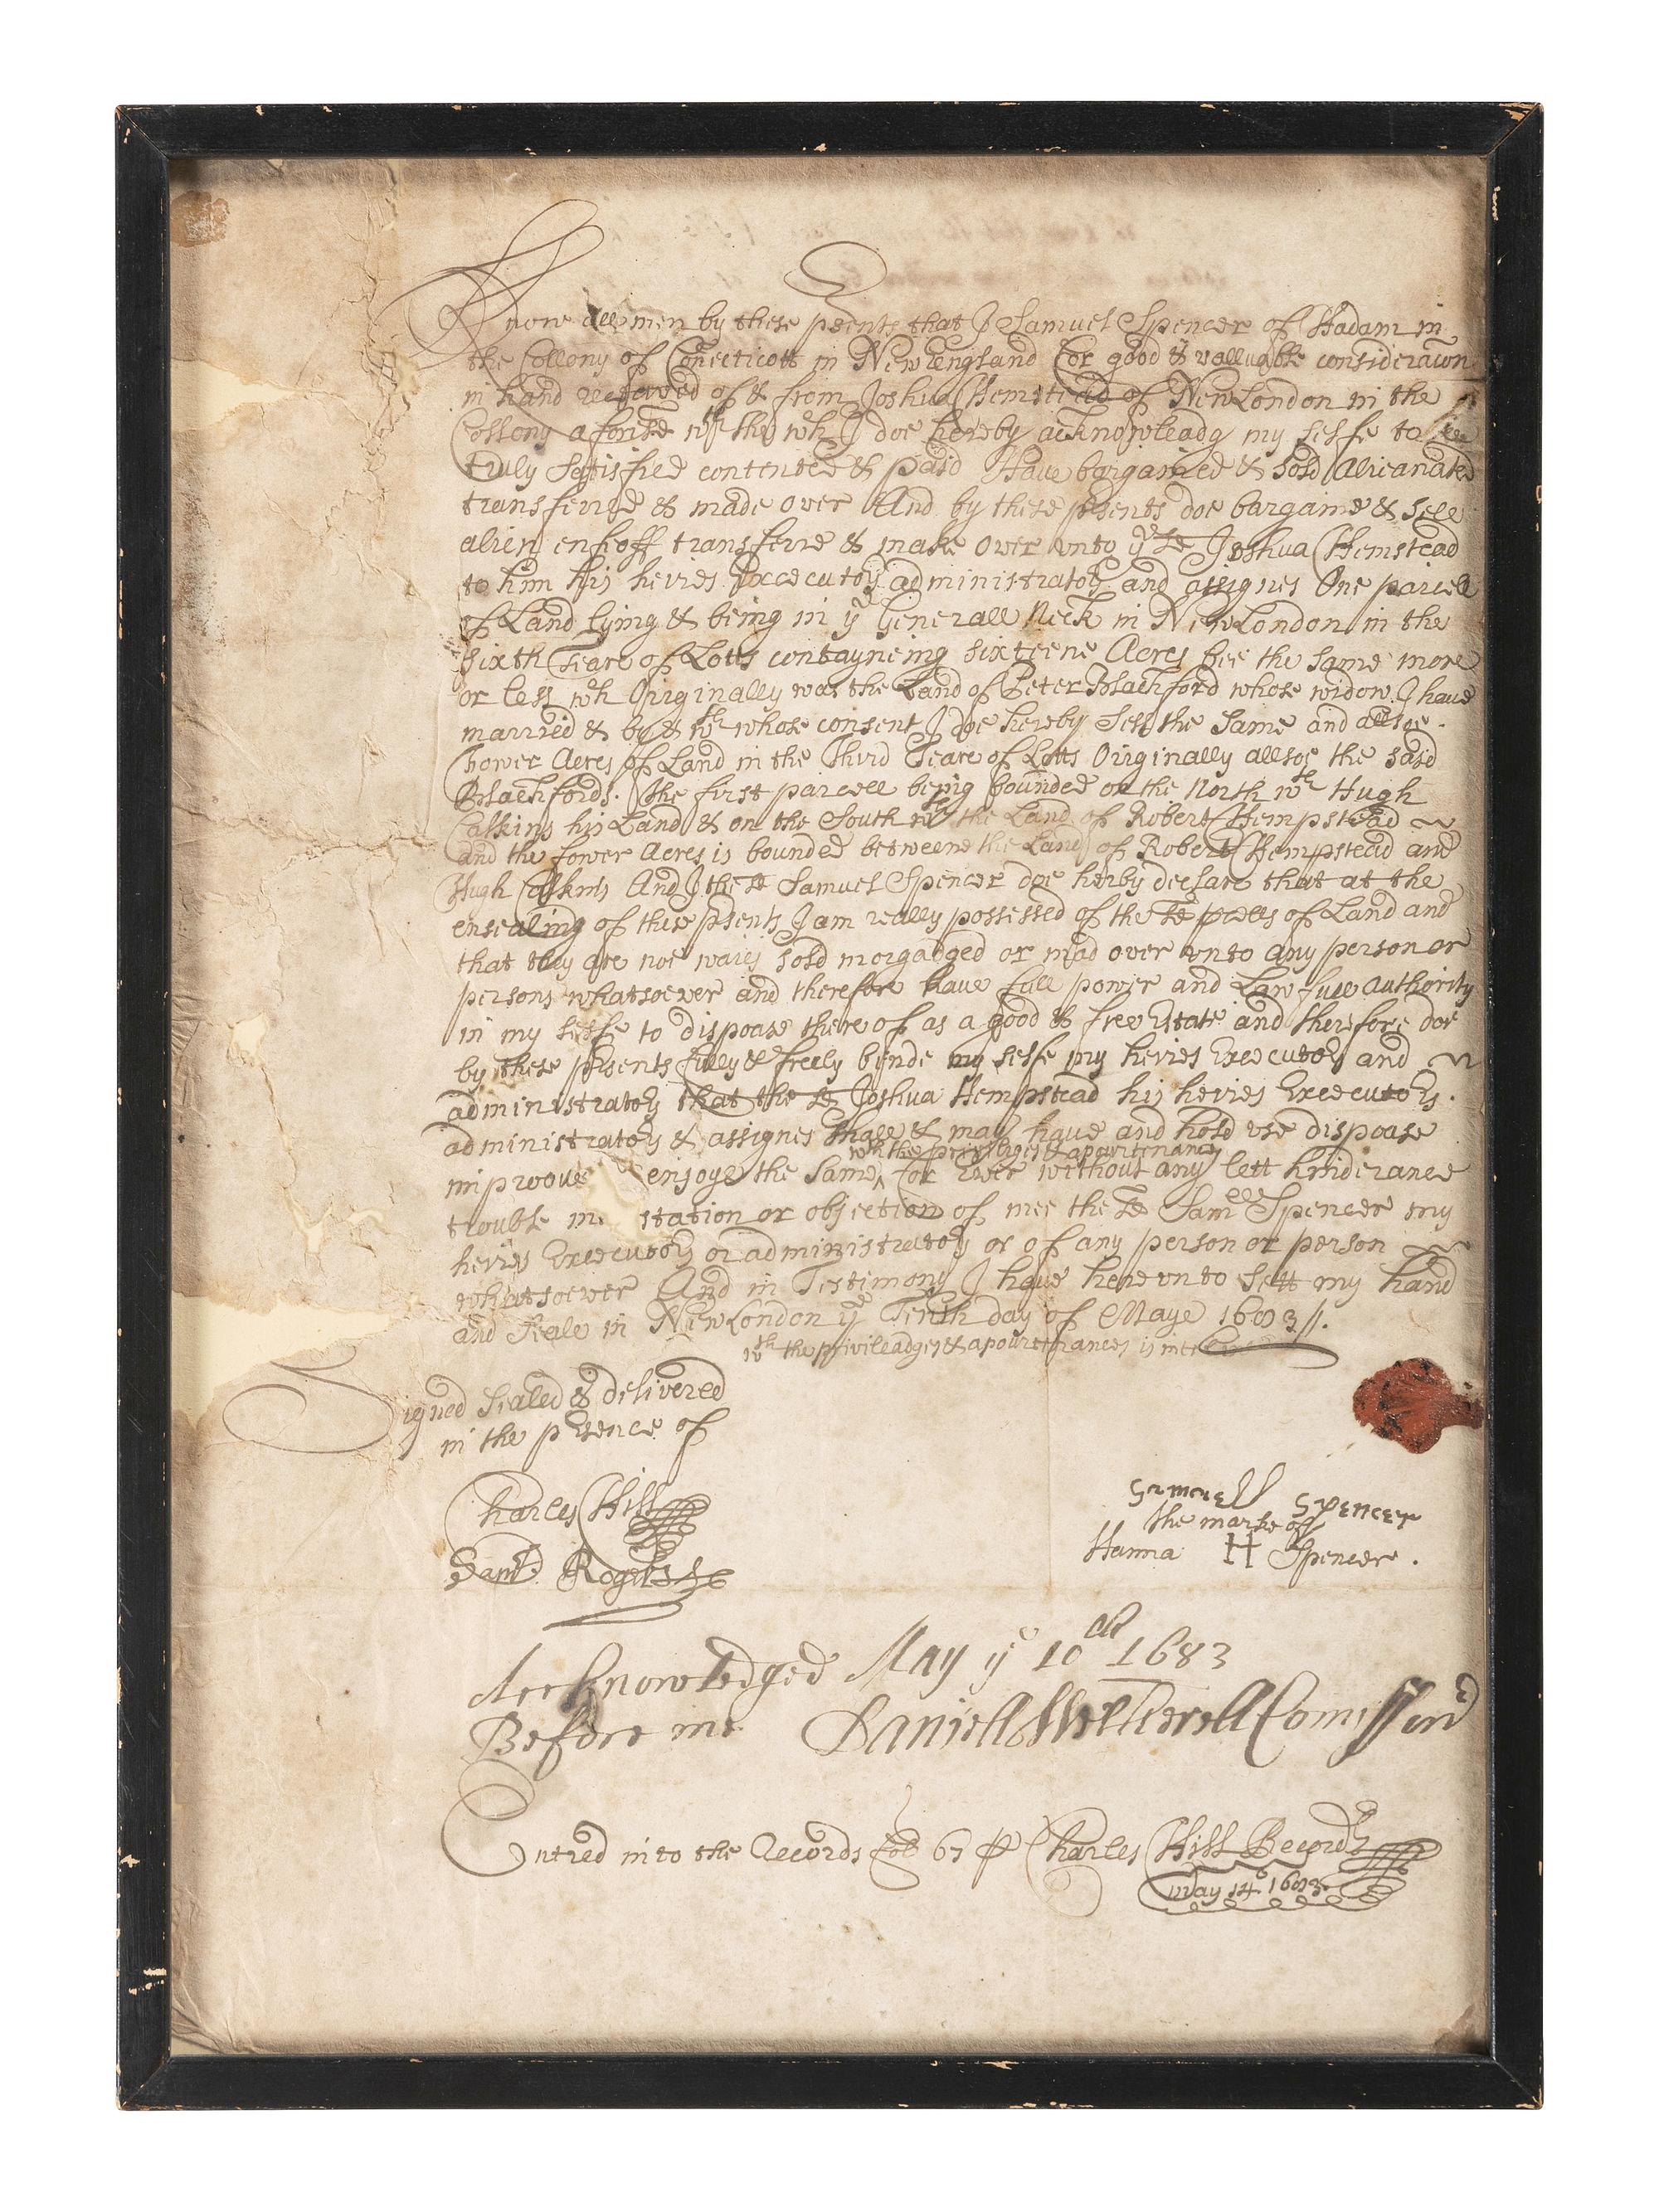 Know all men by these psents that I Samuel Spencer of Hadam in
the Collony of Conecticott in New England for good & valluable consideracion
in hand received of & from Joshua Hemstead of New London in the
Collony aforesd wth the wch I doe hereby acknowleadg my selfe to bee
truly satisfied contented & paid Have bargained & sold alieanated
transferred & made over And by these psents doe bargaine & sell
alien enfeoff transferre & make over vnto ye sd Joshua Hemstead
to him his heires Execcutors administrators and assignes One parcell
of Land lying & being in ye Generall Neck in New London in the
sixth Teare of Lotts contayneing sixteene Acres bee the same more
or less wch Originally was the Land of Peter Blachford whose widow I have
married & by & wth whose consent I doe hereby sell the same and allsoe
fower Acres of Land in the Third Teare of Lotts Oirginally allsoe the said
Blachfords. The first parcell being bounded on the North wth Hugh
Calkins his Land & on the South wth the Land of Robert Hempstead
and the fower Acres is bounded betweene the Land of Robert Hempstead and
Hugh Calkins And I the sd Samuel Spencer doe herby declare that at the
ensealing of these psents I am really possessed of the sd pcells of Land and
that they are noe waies sold morgadged or mad over vnto any person or
persons whatsoever and therefore have full power and Lawfull authority
in my selfe to dispoase there of as a good & free Estate and therefore doe
by these psents fully & freely bynde my selfe my heires Execcutors and
administrators that the sd Joshua Hempstead his heires Execcutors
administrators & assignes shall & may have and hold vse dispoase
wth the priviledges & apourtenances
improove enjoye the same ^ for Ever without any lett hinderance
trouble mo station or objection of mee the sd Samll Spencer my
heires Execcutors or administrators or of any person or person
whatsoever And in Testimony I have here vnto sett my hand
and seale in New London ye Tenth day of Maye 1683 //.
wth the privileadges & apourtenances is
Signed sealed & delivered
in the psence of
Charles Hill
Samll Rogers
Samuell Spencer
the marke of
Hanna H Spencer.
Acknowledged May ye 10th 1683
Before me Daniell Wetherell Comissionr
Entred into the Records fol 67 p Charles Hill Recordr
May 14 1683